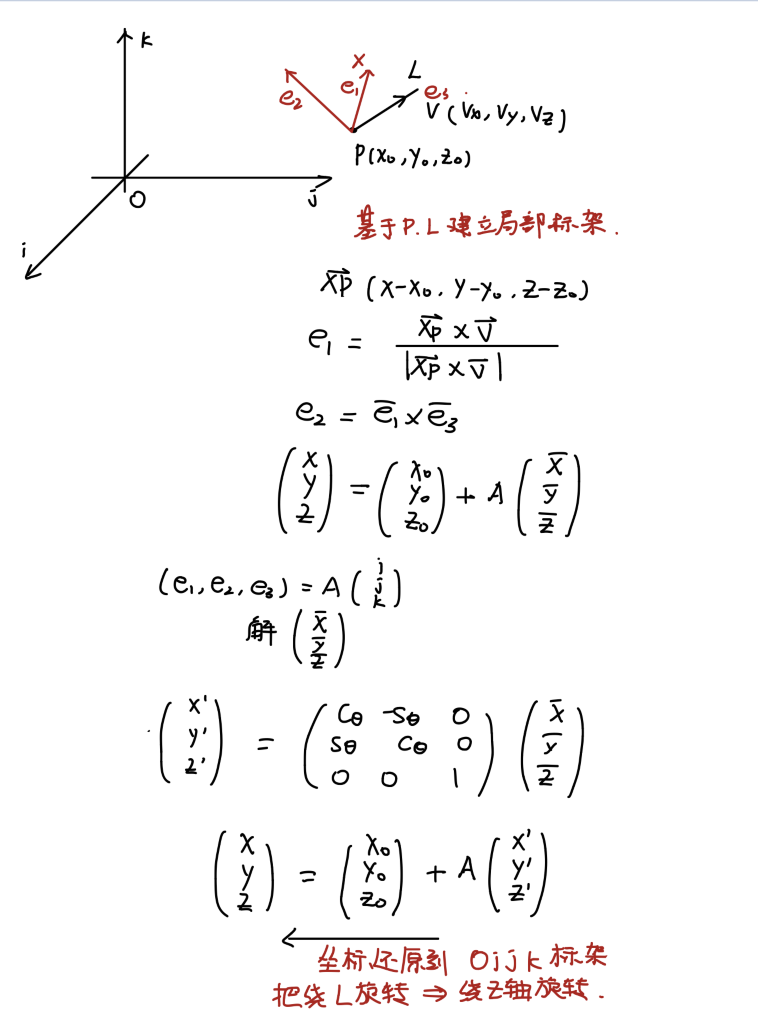 k
x
L
e₂
e₁
e₃
V (Vx, Vy, Vz)
P(x₀, y₀, z₀)
O
j
i
基于P.L 建立局部标架.
$\overrightarrow{XP}$ (x-x₀, y-y₀, z-z₀)
$e_1 = \frac{\overrightarrow{XP} \times \overrightarrow{V}}{|\overrightarrow{XP} \times \overline{V}|}$
$e_2 = \overline{e}_1 \times \overline{e}_3$
$\begin{pmatrix} x \\ y \\ z \end{pmatrix} = \begin{pmatrix} x_0 \\ y_0 \\ z_0 \end{pmatrix} + A \begin{pmatrix} \overline{x} \\ \overline{y} \\ \overline{z} \end{pmatrix}$
$(e_1, e_2, e_3) = A \begin{pmatrix} i \\ j \\ k \end{pmatrix}$
解 $\begin{pmatrix} \overline{x} \\ \overline{y} \\ \overline{z} \end{pmatrix}$
$\begin{pmatrix} x' \\ y' \\ z' \end{pmatrix} = \begin{pmatrix} C_\theta & -S_\theta & 0 \\ S_\theta & C_\theta & 0 \\ 0 & 0 & 1 \end{pmatrix} \begin{pmatrix} \overline{x} \\ \overline{y} \\ \overline{z} \end{pmatrix}$
$\begin{pmatrix} x \\ y \\ z \end{pmatrix} = \begin{pmatrix} x_0 \\ y_0 \\ z_0 \end{pmatrix} + A \begin{pmatrix} x' \\ y' \\ z' \end{pmatrix}$
坐标还原到 Oijk 标架
把绕L旋转 ⇒ 绕Z轴旋转.